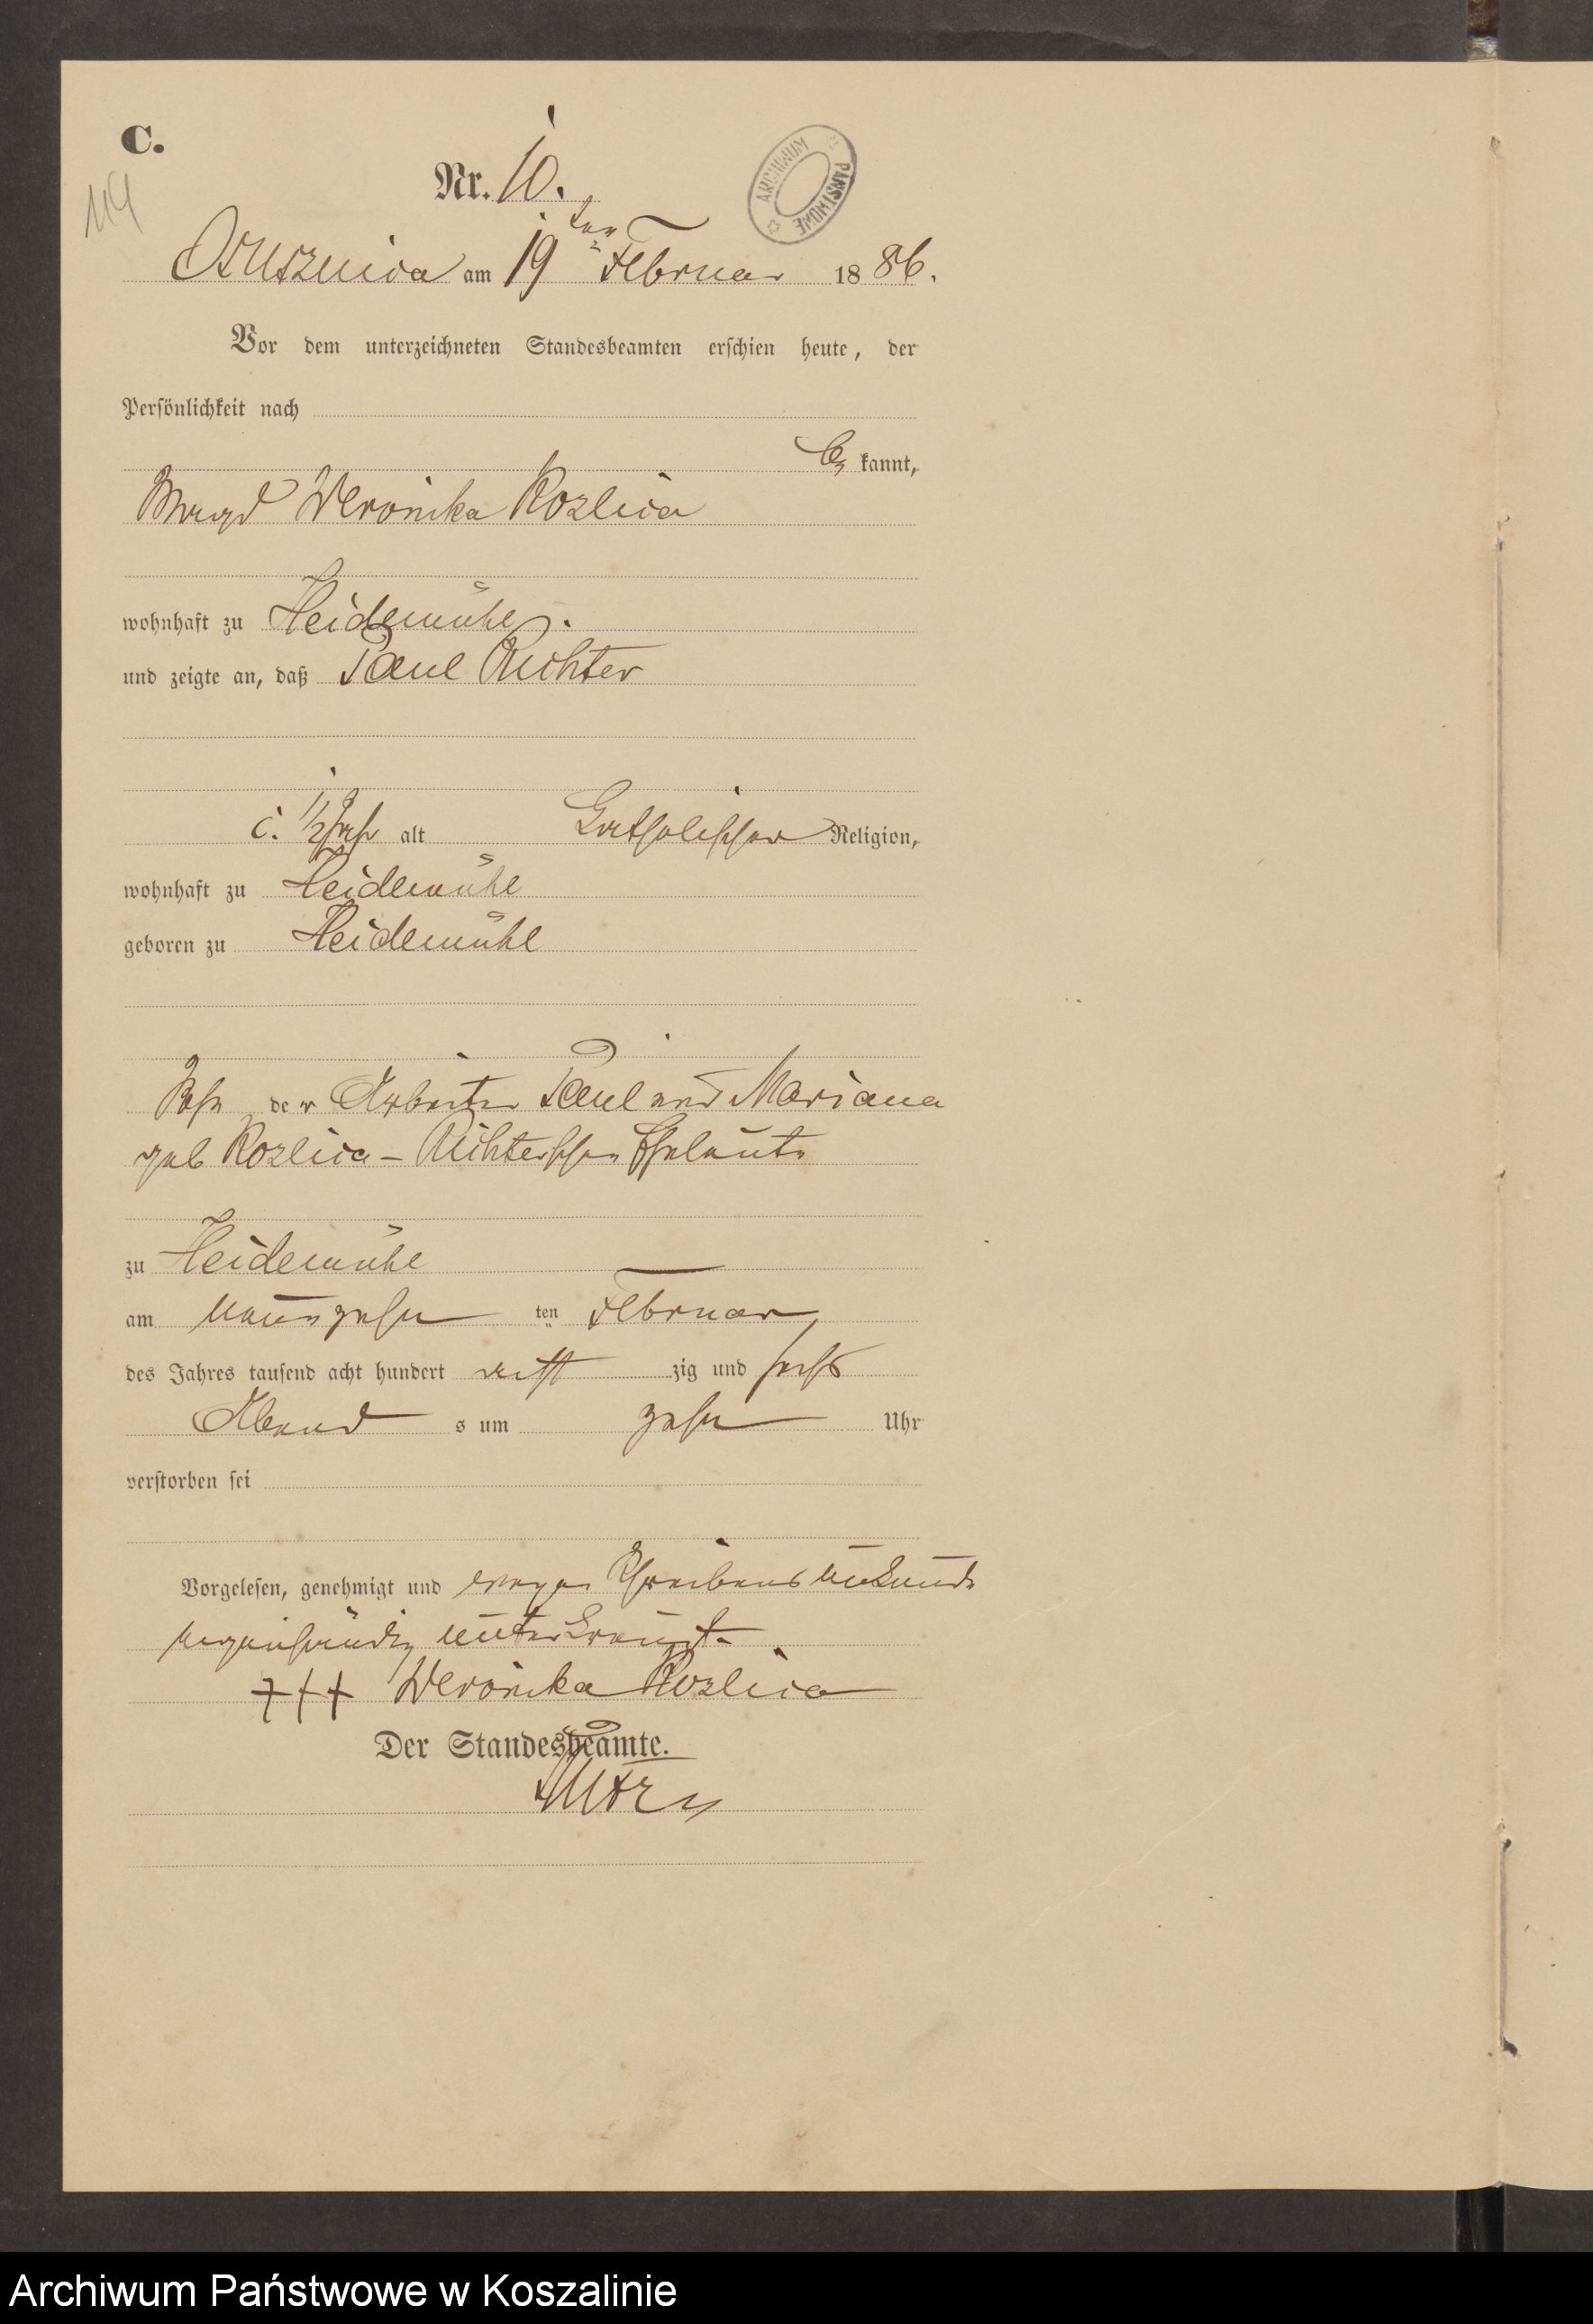 C.
119
Nr. 10.
ARCHIWUM PAŃSTWOWE
Ossusznica am 19 ten Februar 1886.
Vor dem unterzeichneten Standesbeamten erschien heute, der
Persönlichkeit nach
be kannt,
Magd Weronika Kozlica
wohnhaft zu Heidemühl.
und zeigte an, daß Paul Richter
c. 1/2 Jahr alt Katholischer Religion,
wohnhaft zu Heidemühl
geboren zu Heidemühl
Sohn der Arbeiter Paul und Mariana
geb Kozlica - Richterschen Eheleute
zu Heidemühl
am neunzehn ten Februar
des Jahres tausend acht hundert acht zig und sechs
Abend s um zehn Uhr
verstorben sei
Vorgelesen, genehmigt und wegen Schreibensunkunde
eigenhändig unterkreuzt.
+++ Weronika Kozlica
Der Standesbeamte.
Archiwum Państwowe w Koszalinie